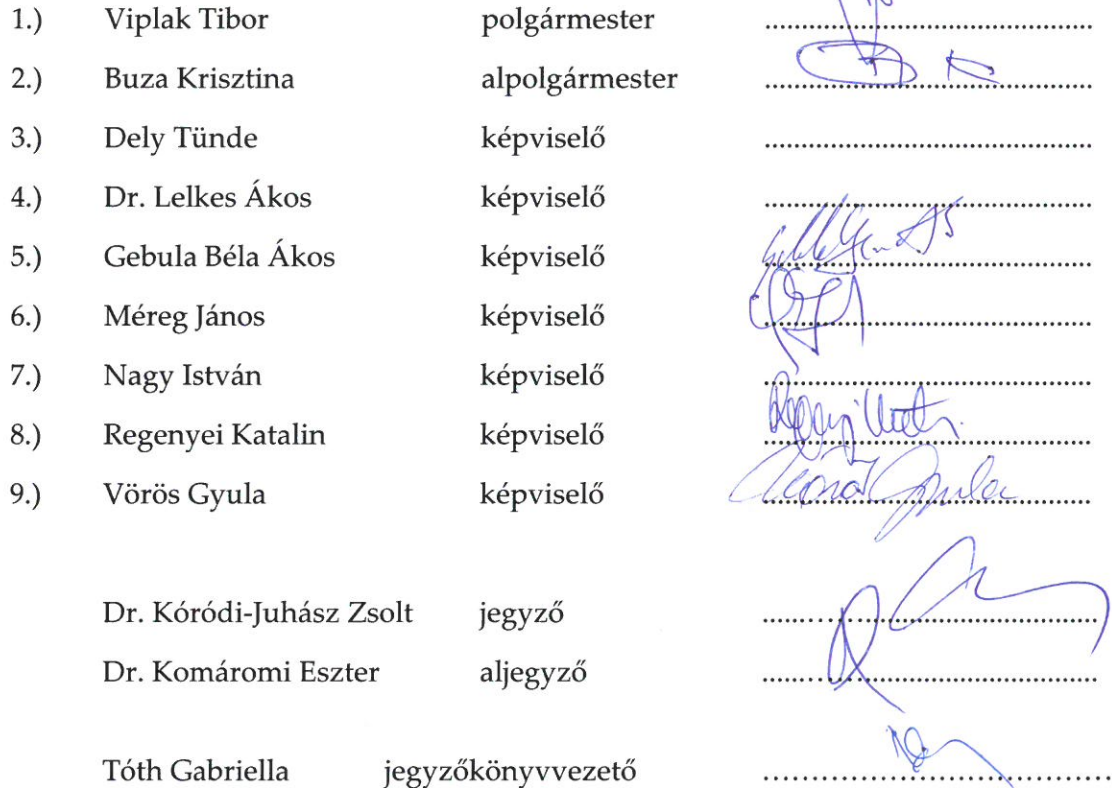 1.) Viplak Tibor polgármester ....................
2.) Buza Krisztina alpolgármester ....................
3.) Dely Tünde képviselő ....................
4.) Dr. Lelkes Ákos képviselő ....................
5.) Gebula Béla Ákos képviselő ....................
6.) Méreg János képviselő ....................
7.) Nagy István képviselő ....................
8.) Regenyei Katalin képviselő ....................
9.) Vörös Gyula képviselő ....................
Dr. Kóródi-Juhász Zsolt jegyző ....................
Dr. Komáromi Eszter aljegyző ....................
Tóth Gabriella jegyzőkönyvvezető ....................